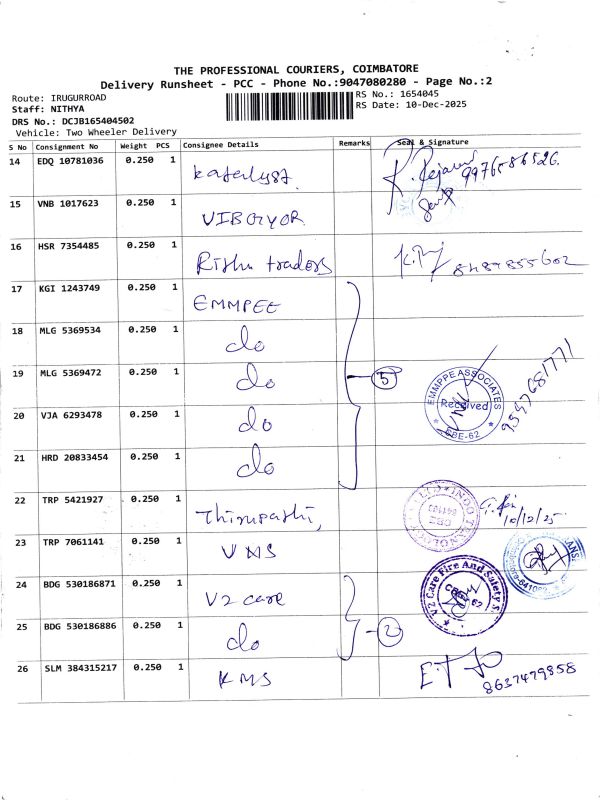 THE PROFESSIONAL COURIERS, COIMBATORE
Delivery Runsheet - PCC - Phone No.:9047080280 - Page No.:2
Route: IRUGURROAD
Staff: NITHYA
DRS No.: DCJB165404502
Vehicle: Two Wheeler Delivery
RS No.: 1654045
RS Date: 10-Dec-2025
S No Consignment No Weight PCS Consignee Details Remarks Seal & Signature
14 EDQ 10781036 0.250 1 Katalyst. 9976586526.
15 VNB 1017623 0.250 1 VIBGYOR
16 HSR 7354485 0.250 1 Rishu traders 8489855602
17 KGI 1243749 0.250 1 EMMPEE
18 MLG 5369534 0.250 1 do
19 MLG 5369472 0.250 1 do 5 EMMPPE ASSOCIATES Received CBE-62 9547681771
20 VJA 6293478 0.250 1 do
21 HRD 20833454 0.250 1 do
22 TRP 5421927 0.250 1 Thirupathi, 10/12/25
23 TRP 7061141 0.250 1 VMS
24 BDG 530186871 0.250 1 V2 care V2 Care Fire And Safety S.
25 BDG 530186886 0.250 1 do 2
26 SLM 384315217 0.250 1 KMS 8637479858